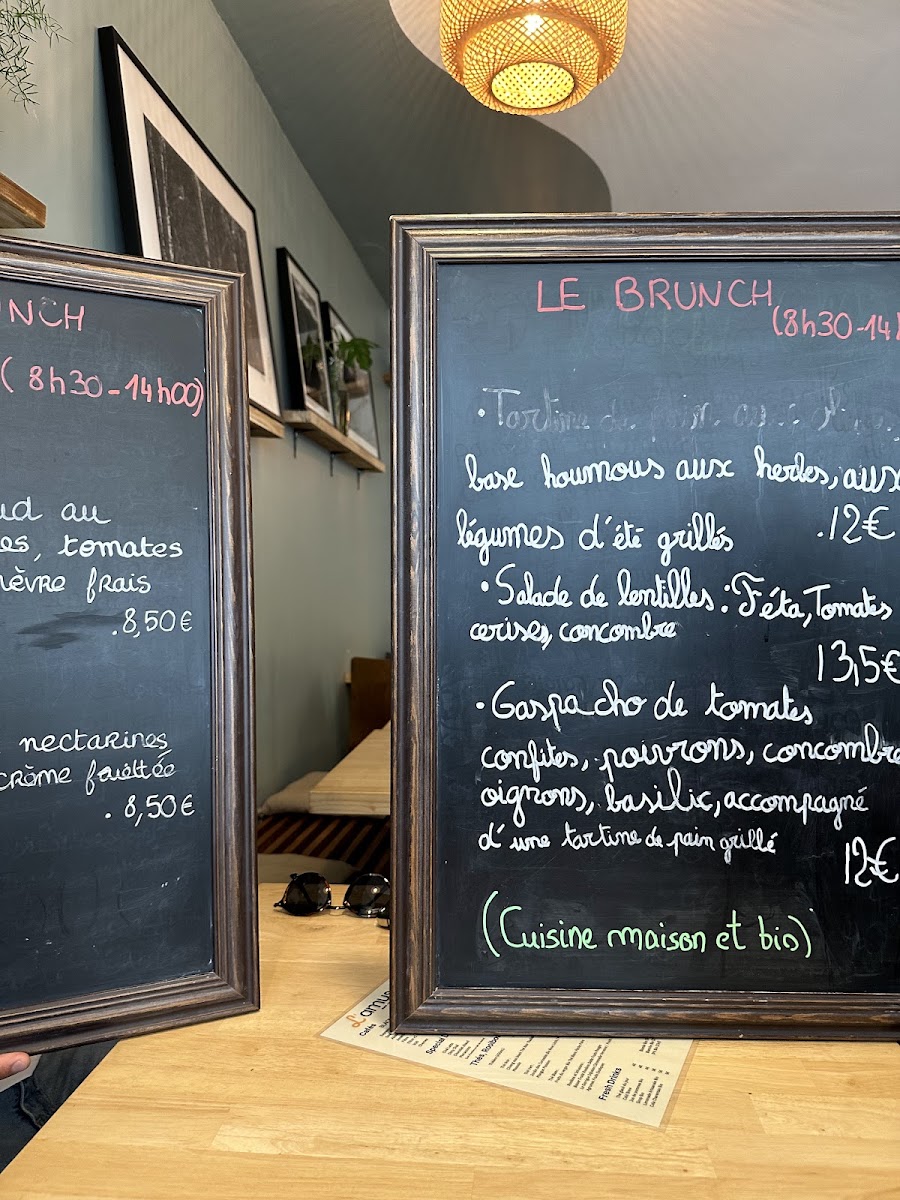 UNCH
(8h30-14h00)
ud au
es, tomates
ièvre frais
.8,50€
nectarines
crème fouettée
.8,50€
LE BRUNCH
(8h30-14h
•Tartine de pain
base houmous aux herbes, aux
légumes d'été grillés
.12€
•Salade de lentilles: Féta, Tomates
cerises, concombre
13,5€
•Gaspacho de tomates
confites, poivrons, concombre
oignons, basilic, accompagné
d'une tartine de pain grillé
12€
(Cuisine maison et bio)
L'amus
Cafés
Spécial
Thés, Rooibo
Fresh Drinks